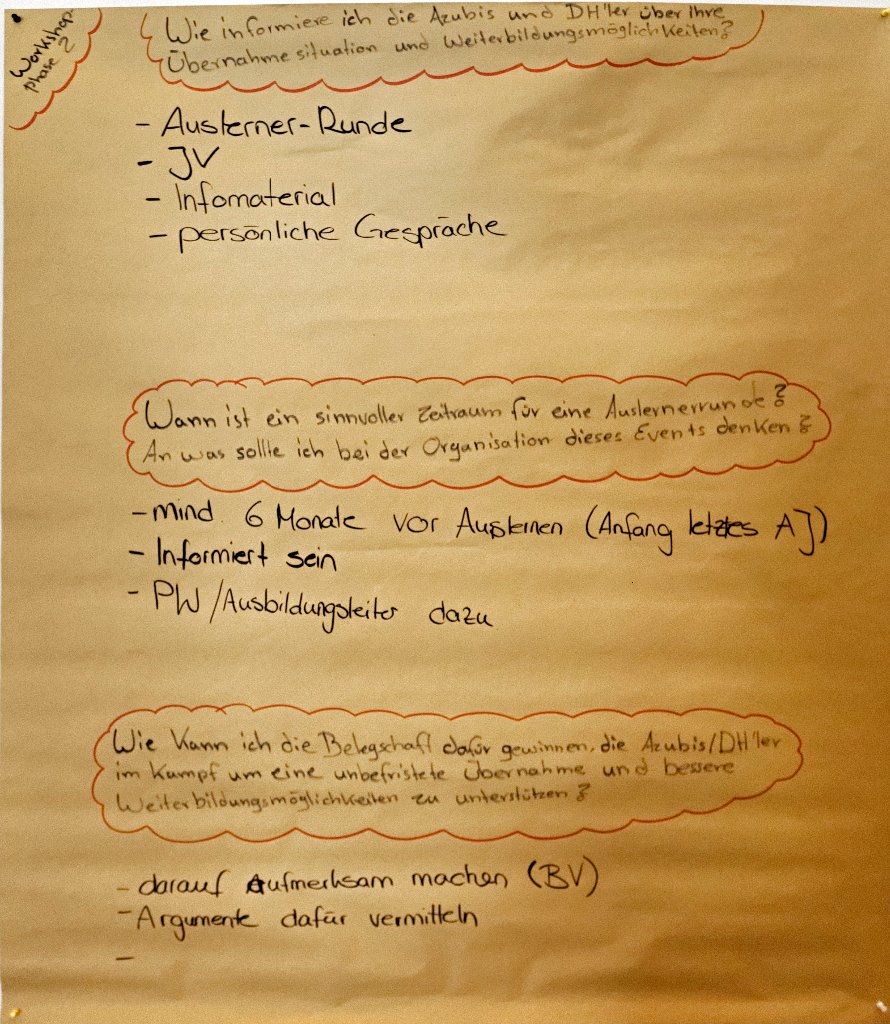 Workshop-
phase 2
Wie informiere ich die Azubis und DH'ler über ihre
Übernahmesituation und Weiterbildungsmöglichkeiten?
- Auslerner-Runde
- JV
- Infomaterial
- persönliche Gespräche
Wann ist ein sinnvoller Zeitraum für eine Auslernerrunde?
An was sollte ich bei der Organisation dieses Events denken?
- mind. 6 Monate vor Auslernen (Anfang letztes AJ)
- Informiert sein
- PW/Ausbildungsleiter dazu
Wie kann ich die Belegschaft dafür gewinnen, die Azubis/DH'ler
im Kampf um eine unbefristete Übernahme und bessere
Weiterbildungsmöglichkeiten zu unterstützen?
- darauf Aufmerksam machen (BV)
- Argumente dafür vermitteln
-